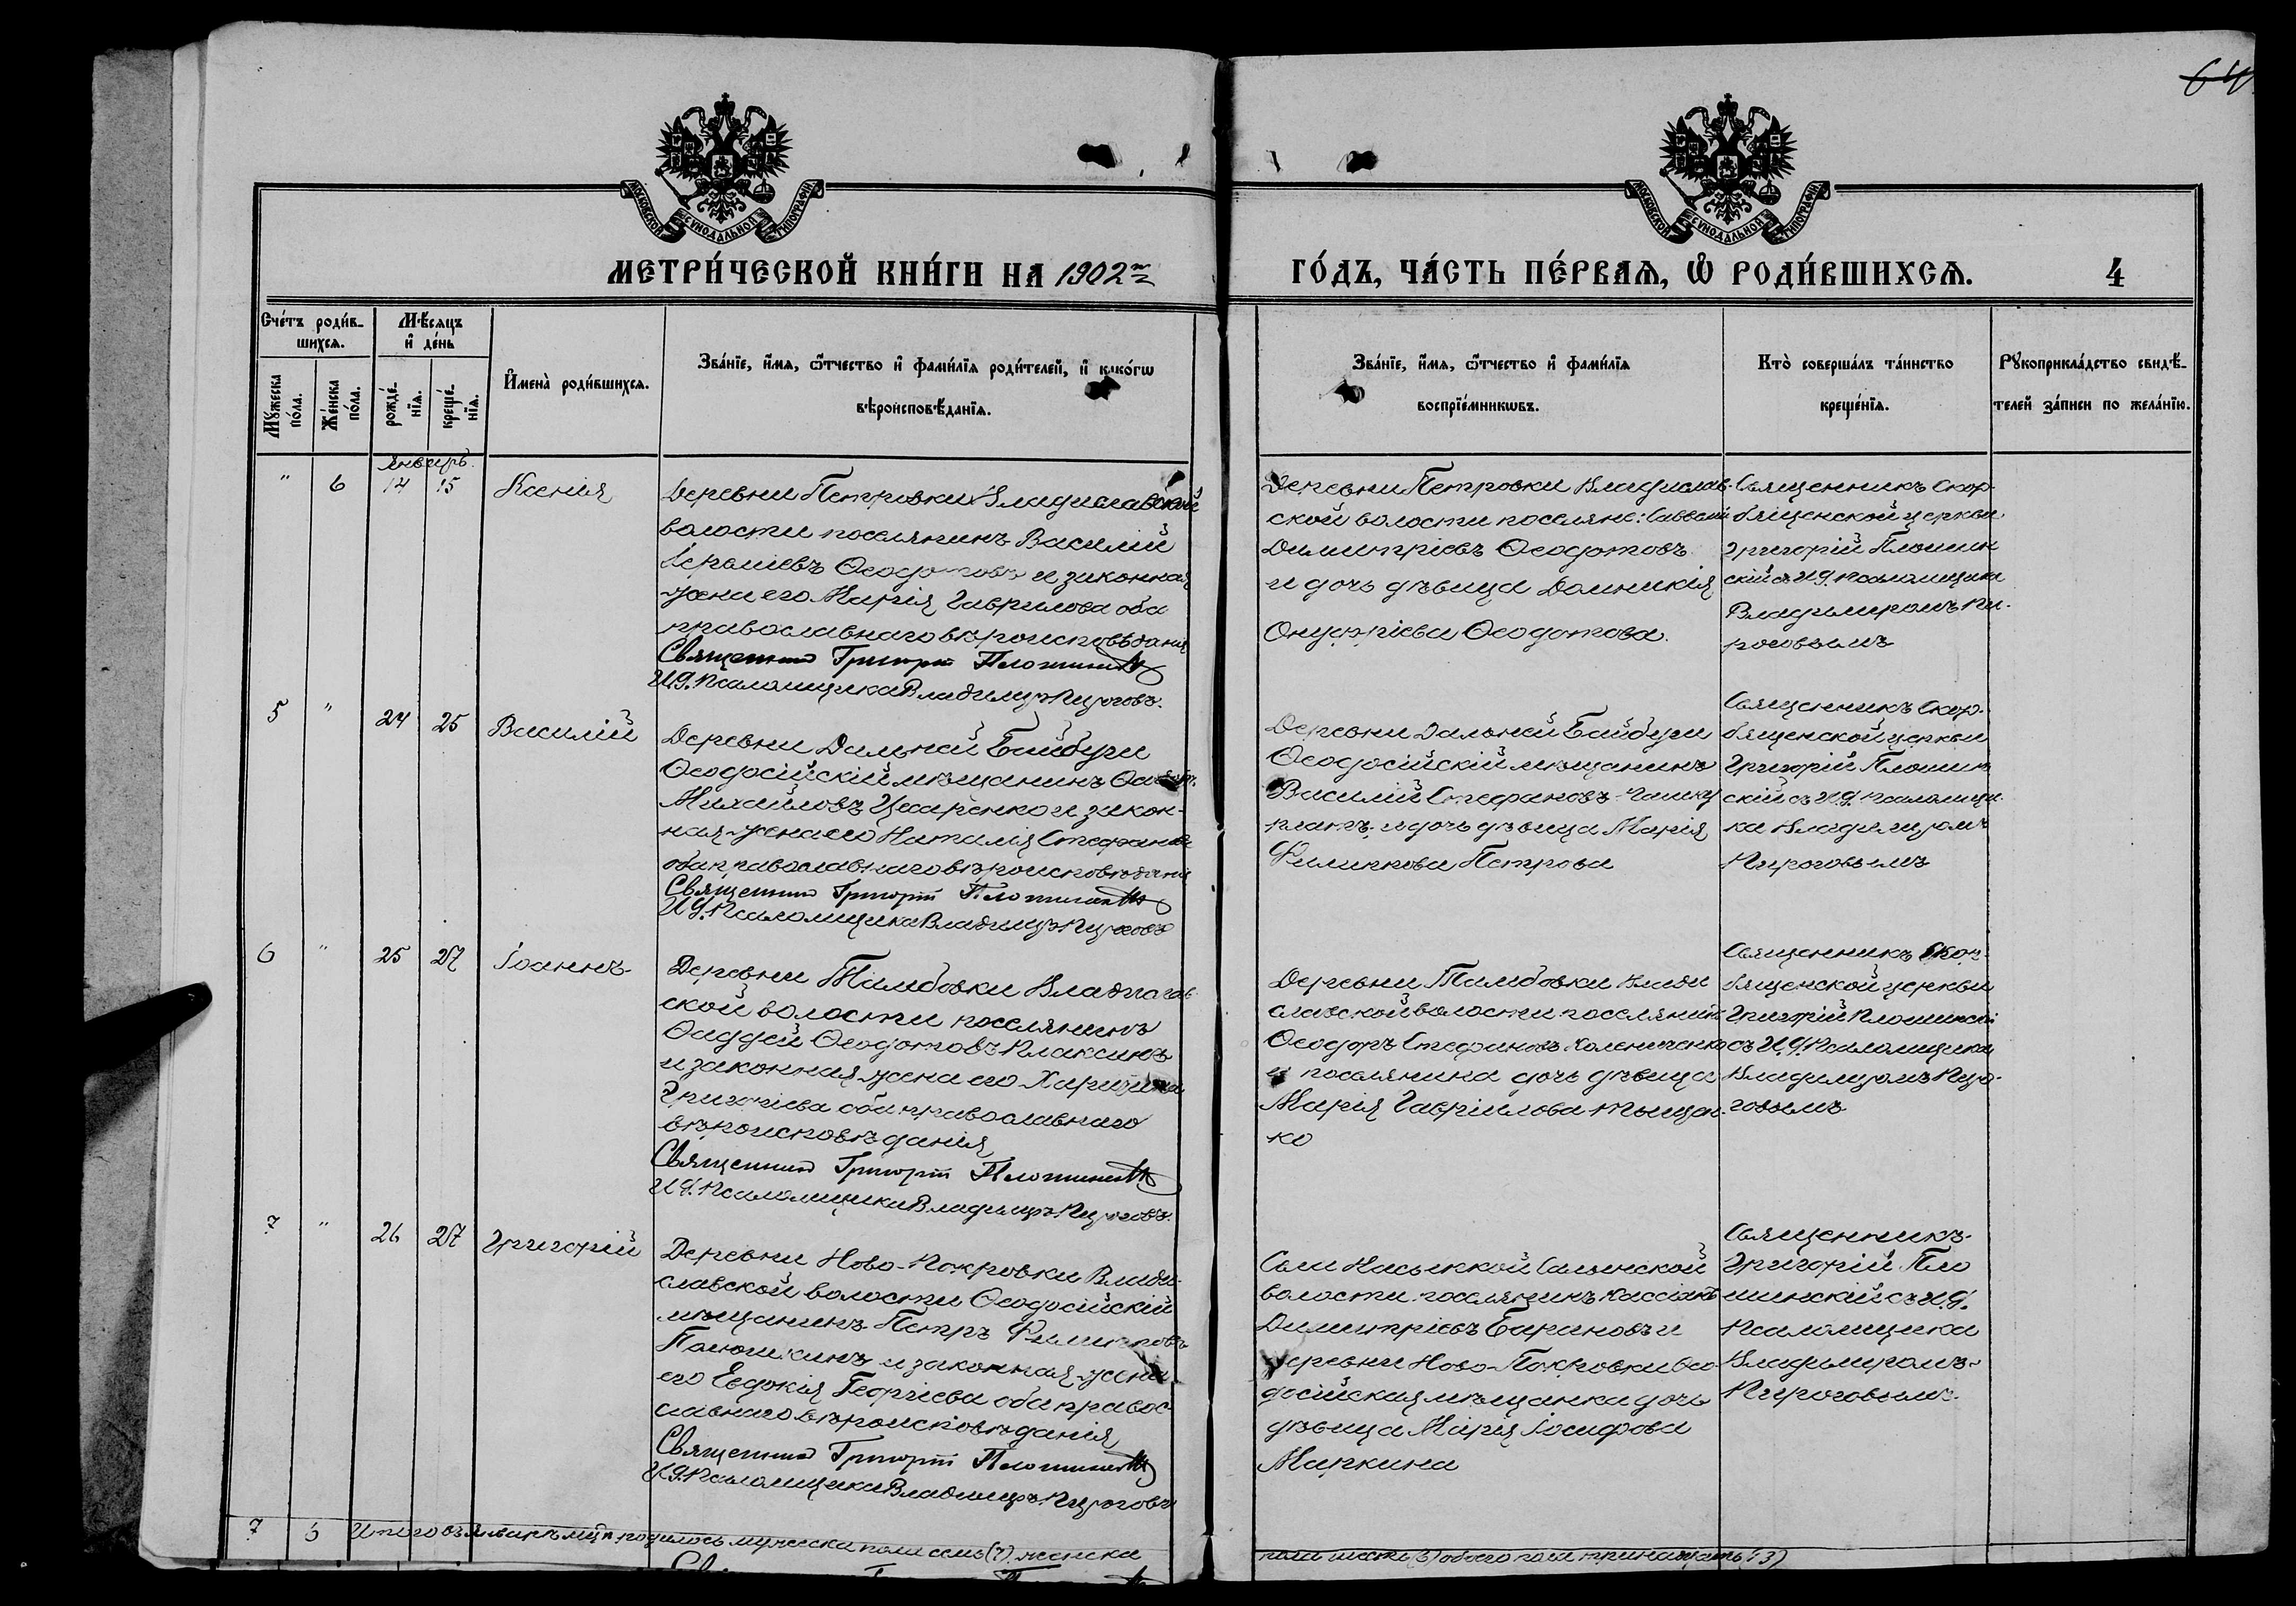 64
МОСКОВСКОЙ СѴНОДАЛЬНОЙ ТИПОГРАФІИ
МОСКОВСКОЙ СѴНОДАЛЬНОЙ ТИПОГРАФІИ
МЕТРИ́ЧЕСКОЙ КНИ́ГИ НА 1902й
ГО́ДЪ, ЧА́СТЬ ПЕ́РВАѦ, Ѡ РОДИ́ВШИХСѦ. 4
Сче́тъ роди́в-
шихсѧ.
Мѣ́сѧцъ
и҆ де́нь
Мꙋ́жеска
по́ла.
Же́нска
по́ла.
рожде́-
нїѧ.
креще́-
нїѧ.
И҆мена̀ роди́вшихсѧ.
Зва́нїе, и҆́мѧ, ѻ҆́тчество и҆ фами́лїѧ роди́телей, и҆ како́гѡ
вѣроисповѣ́данїѧ.
Зва́нїе, и҆́мѧ, ѻ҆́тчество и҆ фами́лїѧ
воспрїе́мникѡвъ.
Кто̀ соверша́лъ та́инство
креще́нїѧ.
Рꙋкоприкла́дство свидѣ́-
телей за́писи по жела́нїю.
Январь.
" 6 14 15 Ксенія
Деревни Петровки Владиславской
волости поселянинъ Василій
Ѳеодотовъ и законная
жена его Марія Гаврилова оба
православнаго вѣроисповѣданія
Священникъ Григорій Плошинскій
И.д. Псаломщика Владиміръ Пироговъ.
Деревни Петровки Владислав-
ской волости поселяне: Савватій
Димитріевъ Ѳеодотовъ
и дочь дѣвица Домникія
Онуфріева Ѳеодотова.
Священникъ Скор-
бященской церкви
Григорій Плошин
скій съ И.д. псаломщика
Владиміромъ Пи-
роговымъ
5 " 24 25 Василій
Деревни Дальней Байбуги
Ѳеодосійскій мѣщанинъ
Михайловъ Цсаренко и закон-
ная жена его Наталія Стефанова
оба православнаго вѣроисповѣданія
Священникъ Григорій Плошинскій
И.д. Псаломщика Владиміръ Пироговъ
Деревни Дальней Байбуги
Ѳеодосійскій мѣщанинъ
Василій Стефановъ
и дочь дѣвица Марія
Филиппова Петрова
Священникъ Скор-
бященской церкви
Григорій Плошин
скій съ И.д. псаломщи-
ка Владиміромъ
Пироговымъ
6 " 25 27 Іоаннъ
Деревни Тамбовки Владислав-
ской волости поселянинъ
Ѳаддей Ѳеодотовъ Плаксинъ
и законная жена его Харитина
Григоріева оба православнаго
вѣроисповѣданія
Священникъ Григорій Плошинскій
И.д. Псаломщика Владиміръ Пироговъ.
Деревни Тамбовки Влади
славской волости поселянинъ
Ѳеодоръ Стефановъ Коленченко
и поселянина дочь дѣвица
Марія Гавріилова Тыщен-
ко
Священникъ Скор-
бященской церкви
Григорій Плошинскій
съ И.д. Псаломщика
Владиміромъ Пиро-
говымъ
7 " 26 27 Григорій
Деревни Ново-Покровки Влади-
славской волости Ѳеодосійскій
мѣщанинъ Петръ Филипповъ
Панюшкинъ и законная жена
его Евдокія Георгіева оба правос-
славнаго вѣроисповѣданія
Священникъ Григорій Плошинскій
И.д. Псаломщика Владиміръ Пироговъ
Села Насыпкой Салынской
волости поселянинъ Кассіанъ
Димитріевъ Барановъ и
деревни Ново-Покровки Ѳео-
досійская мѣщанка дочь
дѣвица Марія Іосифова
Маркина
Священникъ
Григорій Пло
шинскій съ И.д.
Псаломщика
Владиміромъ
Пироговымъ.
7 6 Итого въ Январѣ мцѣ родилось мужеска пола семь (7) женска
пола шесть (6) обоего пола тринадцать (13)